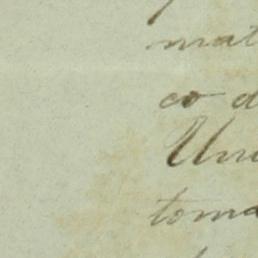 mat
co d
Uni
toma